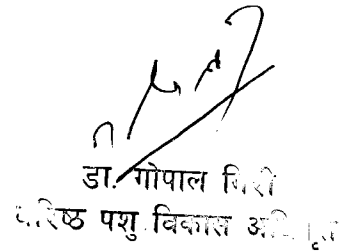 डा. गोपाल गिरी
वरिष्ठ पशु विकास अधिकृत